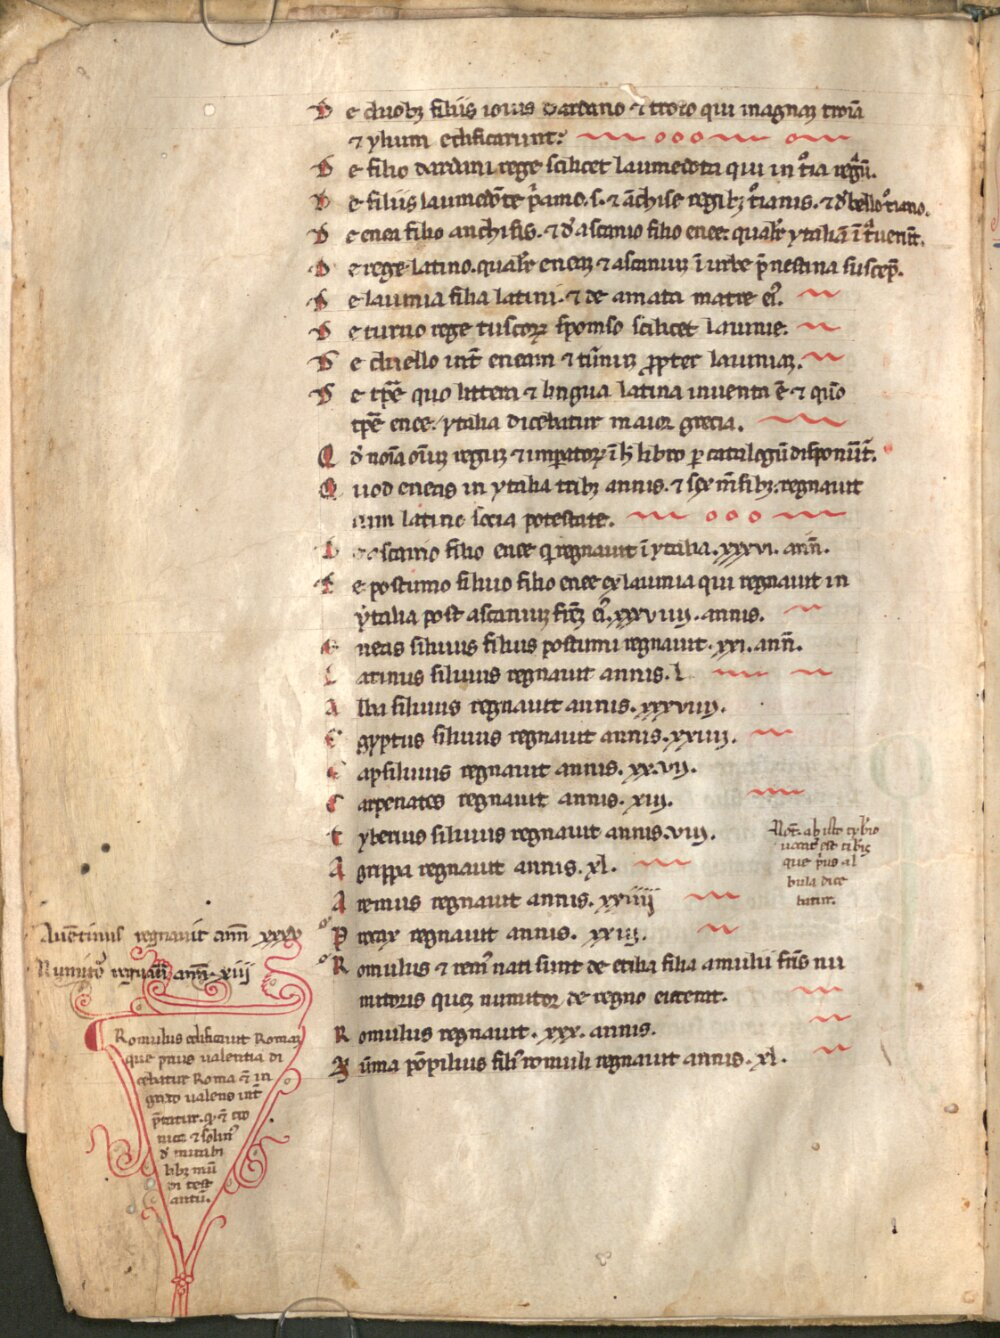 De duobꝫ filiis iouis dardano ⁊ troio qui magnaꝫ troiā
⁊ ylium edificarunt:
De filio dardani rege scilicet laumedōta qui in t̾ia regᷓu.
De filiis laumedōte p̾amo .s. ⁊ āchise regibꝫ t̾oianis. ⁊ d̾ bello t̾oiano.
De enea filio anchisis. ⁊ d̾ ascanio filio enee: qualr̄ ytaliā īt̾uener̄t.
De rege latino. qualr̄ eneaꝫ ⁊ ascaniuꝫ ī urbe p̄nestina suscep̄.
De lauinia filia latini. ⁊ de amata matre ei᾽.
De turno rege tuscoꝝ sponso scilicet lauinie.
De duello int̄ eneam ⁊ turnuꝫ ꝓpter lauiniaꝫ.
De tp̄e quo littera ⁊ lingua latina inuenta ē ⁊ quō
tp̄e enee. ytalia dicebatur maior grecia.
Qd̾ noīa oīuꝫ reguꝫ ⁊ imp̄atoꝝ ī h̄ libro ꝑ catalogū disponūt̄.
Quod eneas in ytalia tribꝫ annis. ⁊ sex m̄sibꝫ. regnauit
cum latino socia potestate.
De ascanio filio enee q̄ regnauit ī ytalia. xxxvi. ann̄.
De postumo siluio filio enee ex lauinia qui regnauit in
ytalia post ascaniuꝫ fr̄eꝫ ei᾽. xxxviiij. annis.
Eneas siluius filius postumi regnauit. xxi. ann̄.
Latinus siluius regnauit annis. l
Alba siluius regnauit annis. xxxviiij.
Egyptus siluius regnauit annis. xxiiij.
Capsiluius regnauit annis. xx.vij.
Carpenatos regnauit annis. xiij.
Tyberius siluius regnauit annis. viij.
Not̄. ab isto tyb̾io
uocat᾽ est tib̾is
que p̾us al
bula dice
batur.
Agrippa regnauit annis. xl.
Aremus regnauit annis. xviiij
Auētinus regnauit ann̄ xxxv
Procax regnauit annis. xxiij.
Numito᾽ regnauit ann̄. xiij
Romulus ⁊ rem᾽ nati sunt de etilia filia amulii fr̄is nu
mitoris queꝫ numitor de regno eiecerat.
Romulus regnauit. xxx. annis.
Nūma pōpilius fili᾽ romuli regnauit annis. xl.
Romulus edificauit Romaꝫ
que prius ualentia di
cebatur Roma ⁊ in
greco ualens int̄
p̄tatur. q̾ ⁊ cro
nica ⁊ solin᾽
d̾ mirabi
libꝫ mū
di test
antu᾽.